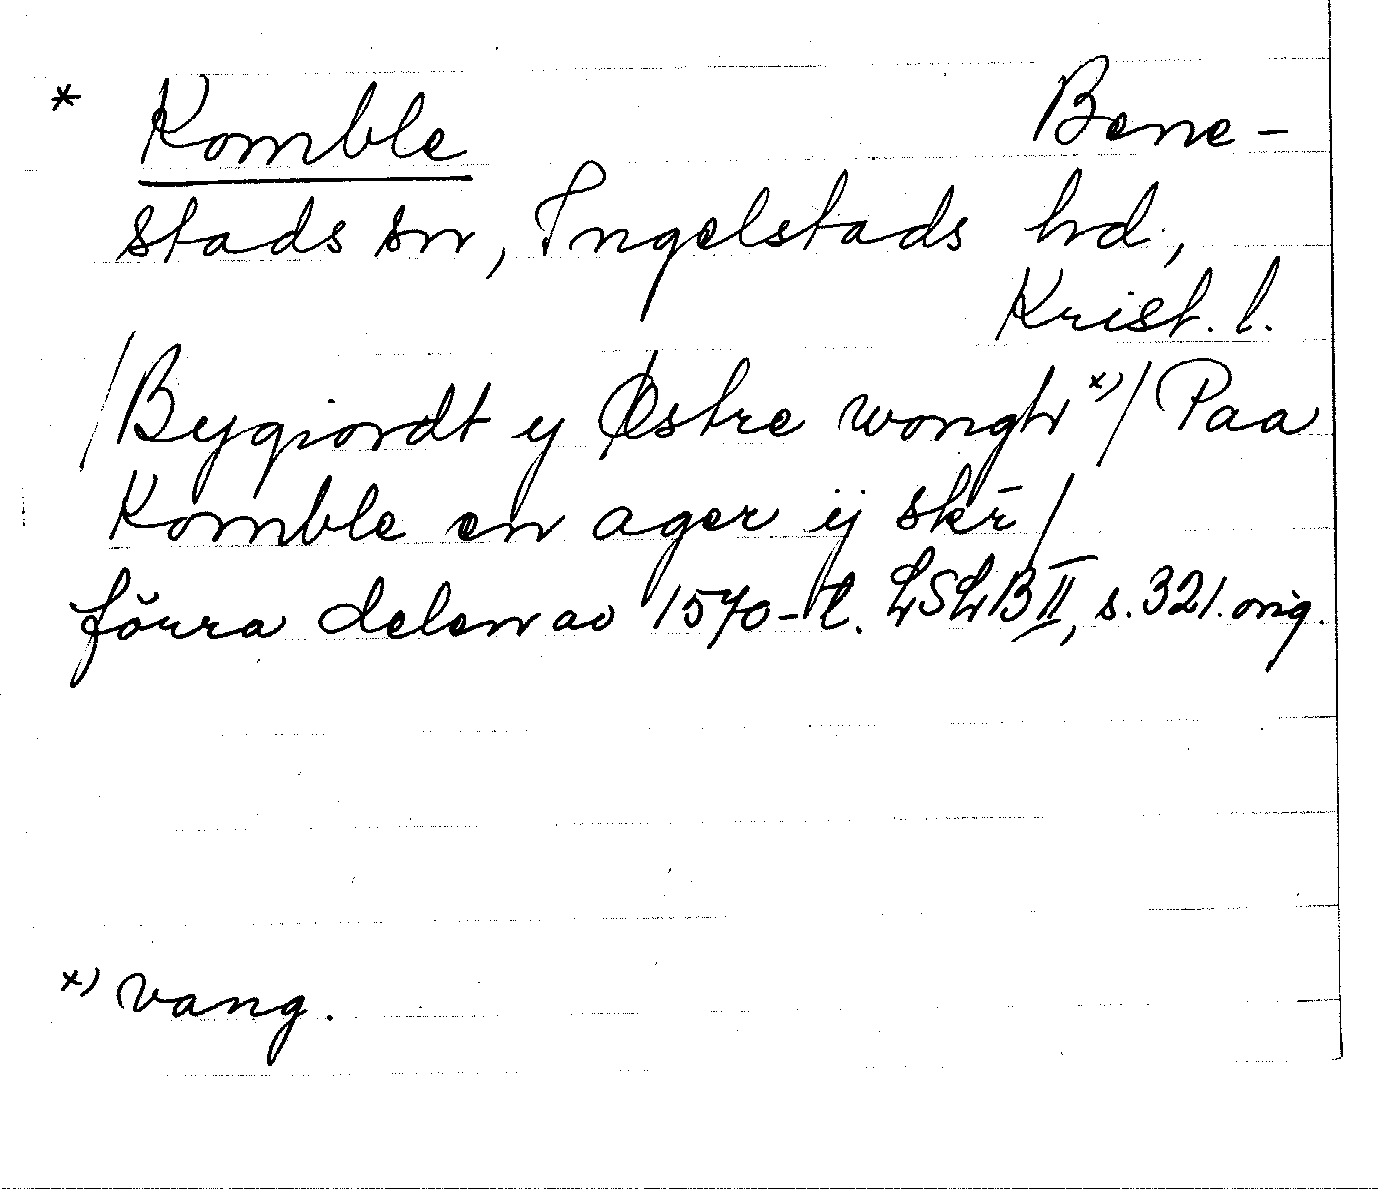 * Komble Bene-
stads sn, Ingelstads hd.,
Krist. l.
/Bygiordt y Østre wongh x)/ Paa
Komble en ager ij skr̄/
förra delen av 1570-t. LSLB II, s. 321. orig.
x) vang.